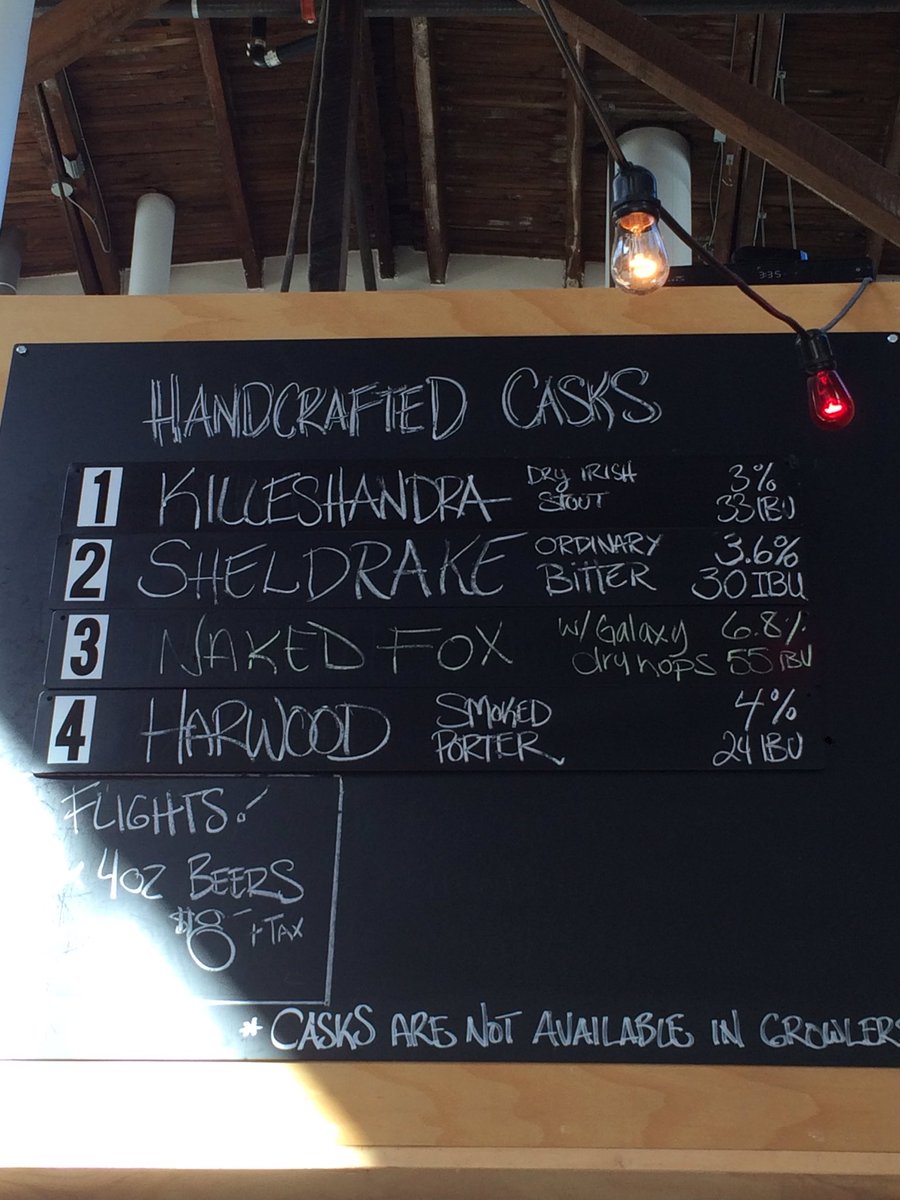 335
HANDCRAFTED CASKS
1 KILLESHANDRA DRY IRISH STOUT 3% 33 IBU
2 SHELDRAKE ORDINARY BITTER 3.6% 30 IBU
3 NAKED FOX w/ Galaxy dry hops 6.8% 55 IBU
4 HARWOOD SMOKED PORTER 4% 24 IBU
FLIGHTS!
4oz BEERS
$8 + TAX
* CASKS ARE NOT AVAILABLE IN GROWLERS